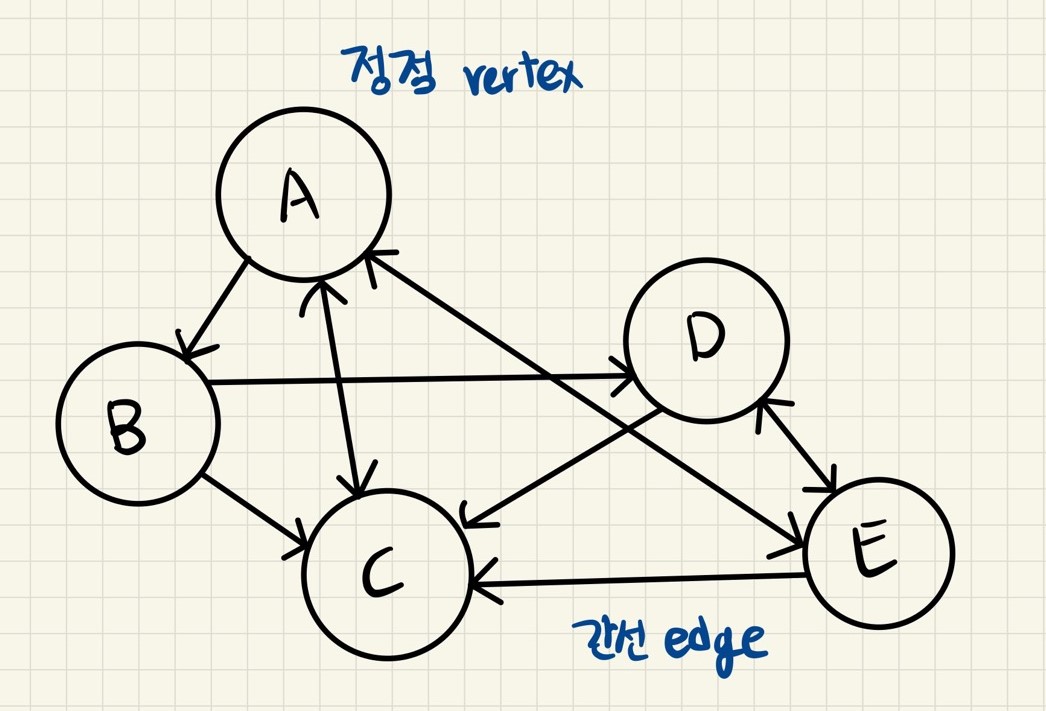 정점 vertex
A
D
B
C
E
간선 edge